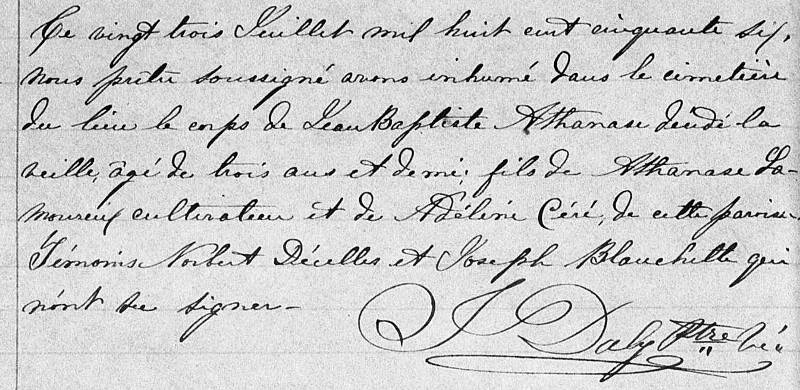 Ce vingt trois Juillet mil huit cent cinquante six,
nous prêtre soussigné avons inhumé dans le cimetière
du lieu le corps de Jean Baptiste Athanase décédé la
veille, âgé de trois ans et demi; fils de Athanase La-
moureux cultivateur et de Adéline Céré, de cette paroisse
Témoins Norbert Décelles et Joseph Blanchette qui
n'ont su signer -
J Daly Ptre